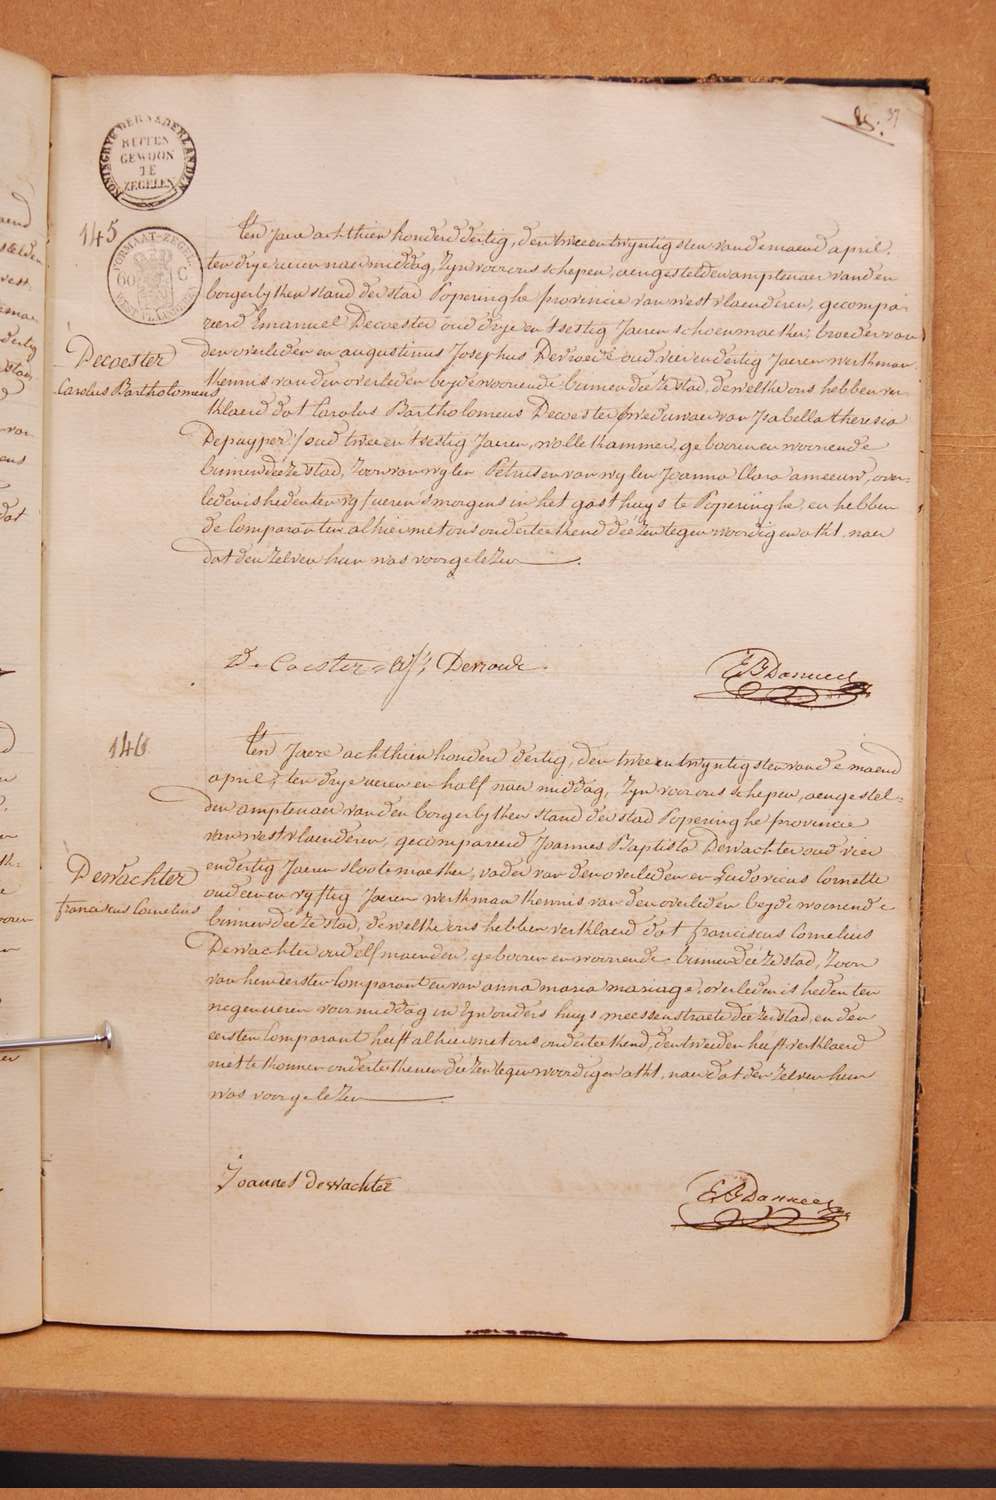 39
KONINGRYK DER NEDERLANDEN
BUITEN
GEWOON
TE
ZEGELEN
FORMAAT-ZEGEL
60 C
WEST VLAANDEREN
145
Decoester
Carolus Bartholomeus
ten jare achthien honderd dertig, den twee en twyntigsten van de maend april.
ten drye ueren naer middag, zyn voor ons schepen, aengestelden amptenaer van den
borgerlyken stand der stad Poperinghe provincie van westvlaenderen, gecompa-
reerd Emanuel Decoester oud drye en t'sestig Jaeren schoenmaeker, broeder van
den overleden en augustinus Josephus Deroode oud vier en dertig Jaeren werkman
kennis van den overleden beyde woonende binnen deéze stad, dewelke ons hebben ver-
klaerd dat Carolus Bartholomeus Decoester (weduwaer van Isabella theresia
Depuyper) oud twee en t'sestig Jaeren, wollekammer, gebooren en woonende
binnen deéze stad, zoon van wylen Petrus en van wylen Joanna Clara ameeuw, over-
leden is heden ten vyf ueren s'morgens in het gasthuys te Poperinghe, en hebben
de Comparanten alhier met ons onderteekend deézen tegenwoordigen akt, naer
dat den zelven hun was voorgelezen.
De Coester Deroode
146
Dewachter
franciscus Cornelius
ten Jaere achthien honderd dertig, den twee en twyntigsten van de maend
april, ten drye ueren en half naer middag, zyn voor ons schepen, aengestel-
den amptenaer van den borgerlyken stand der stad Poperinghe provincie
van westvlaenderen, gecompareerd Joannes Baptista Dewachter oud vier
en dertig Jaeren slootemaeker, vader van den overleden en Ludovicus Cornette
oud een en vyftig Jaeren werkman kennis van den overleden beyde woonende
binnen deéze stad, dewelke ons hebben verklaerd dat franciscus Cornelius
Dewachter oud elf maenden, gebooren en woonende binnen deéze stad, zoon
van hem eersten Comparant en van anna maria mariage, overleden is heden ten
negen ueren voor middag in zyn ouders huys meessenstraete deéze stad, en den
eersten Comparant heeft alhier met ons onderteekend, den tweeden heeft verklaerd
niet te konnen onderteekenen deézen tegenwoordigen akt, naer dat den zelven hun
was voorgelezen.
Joannes dewachter